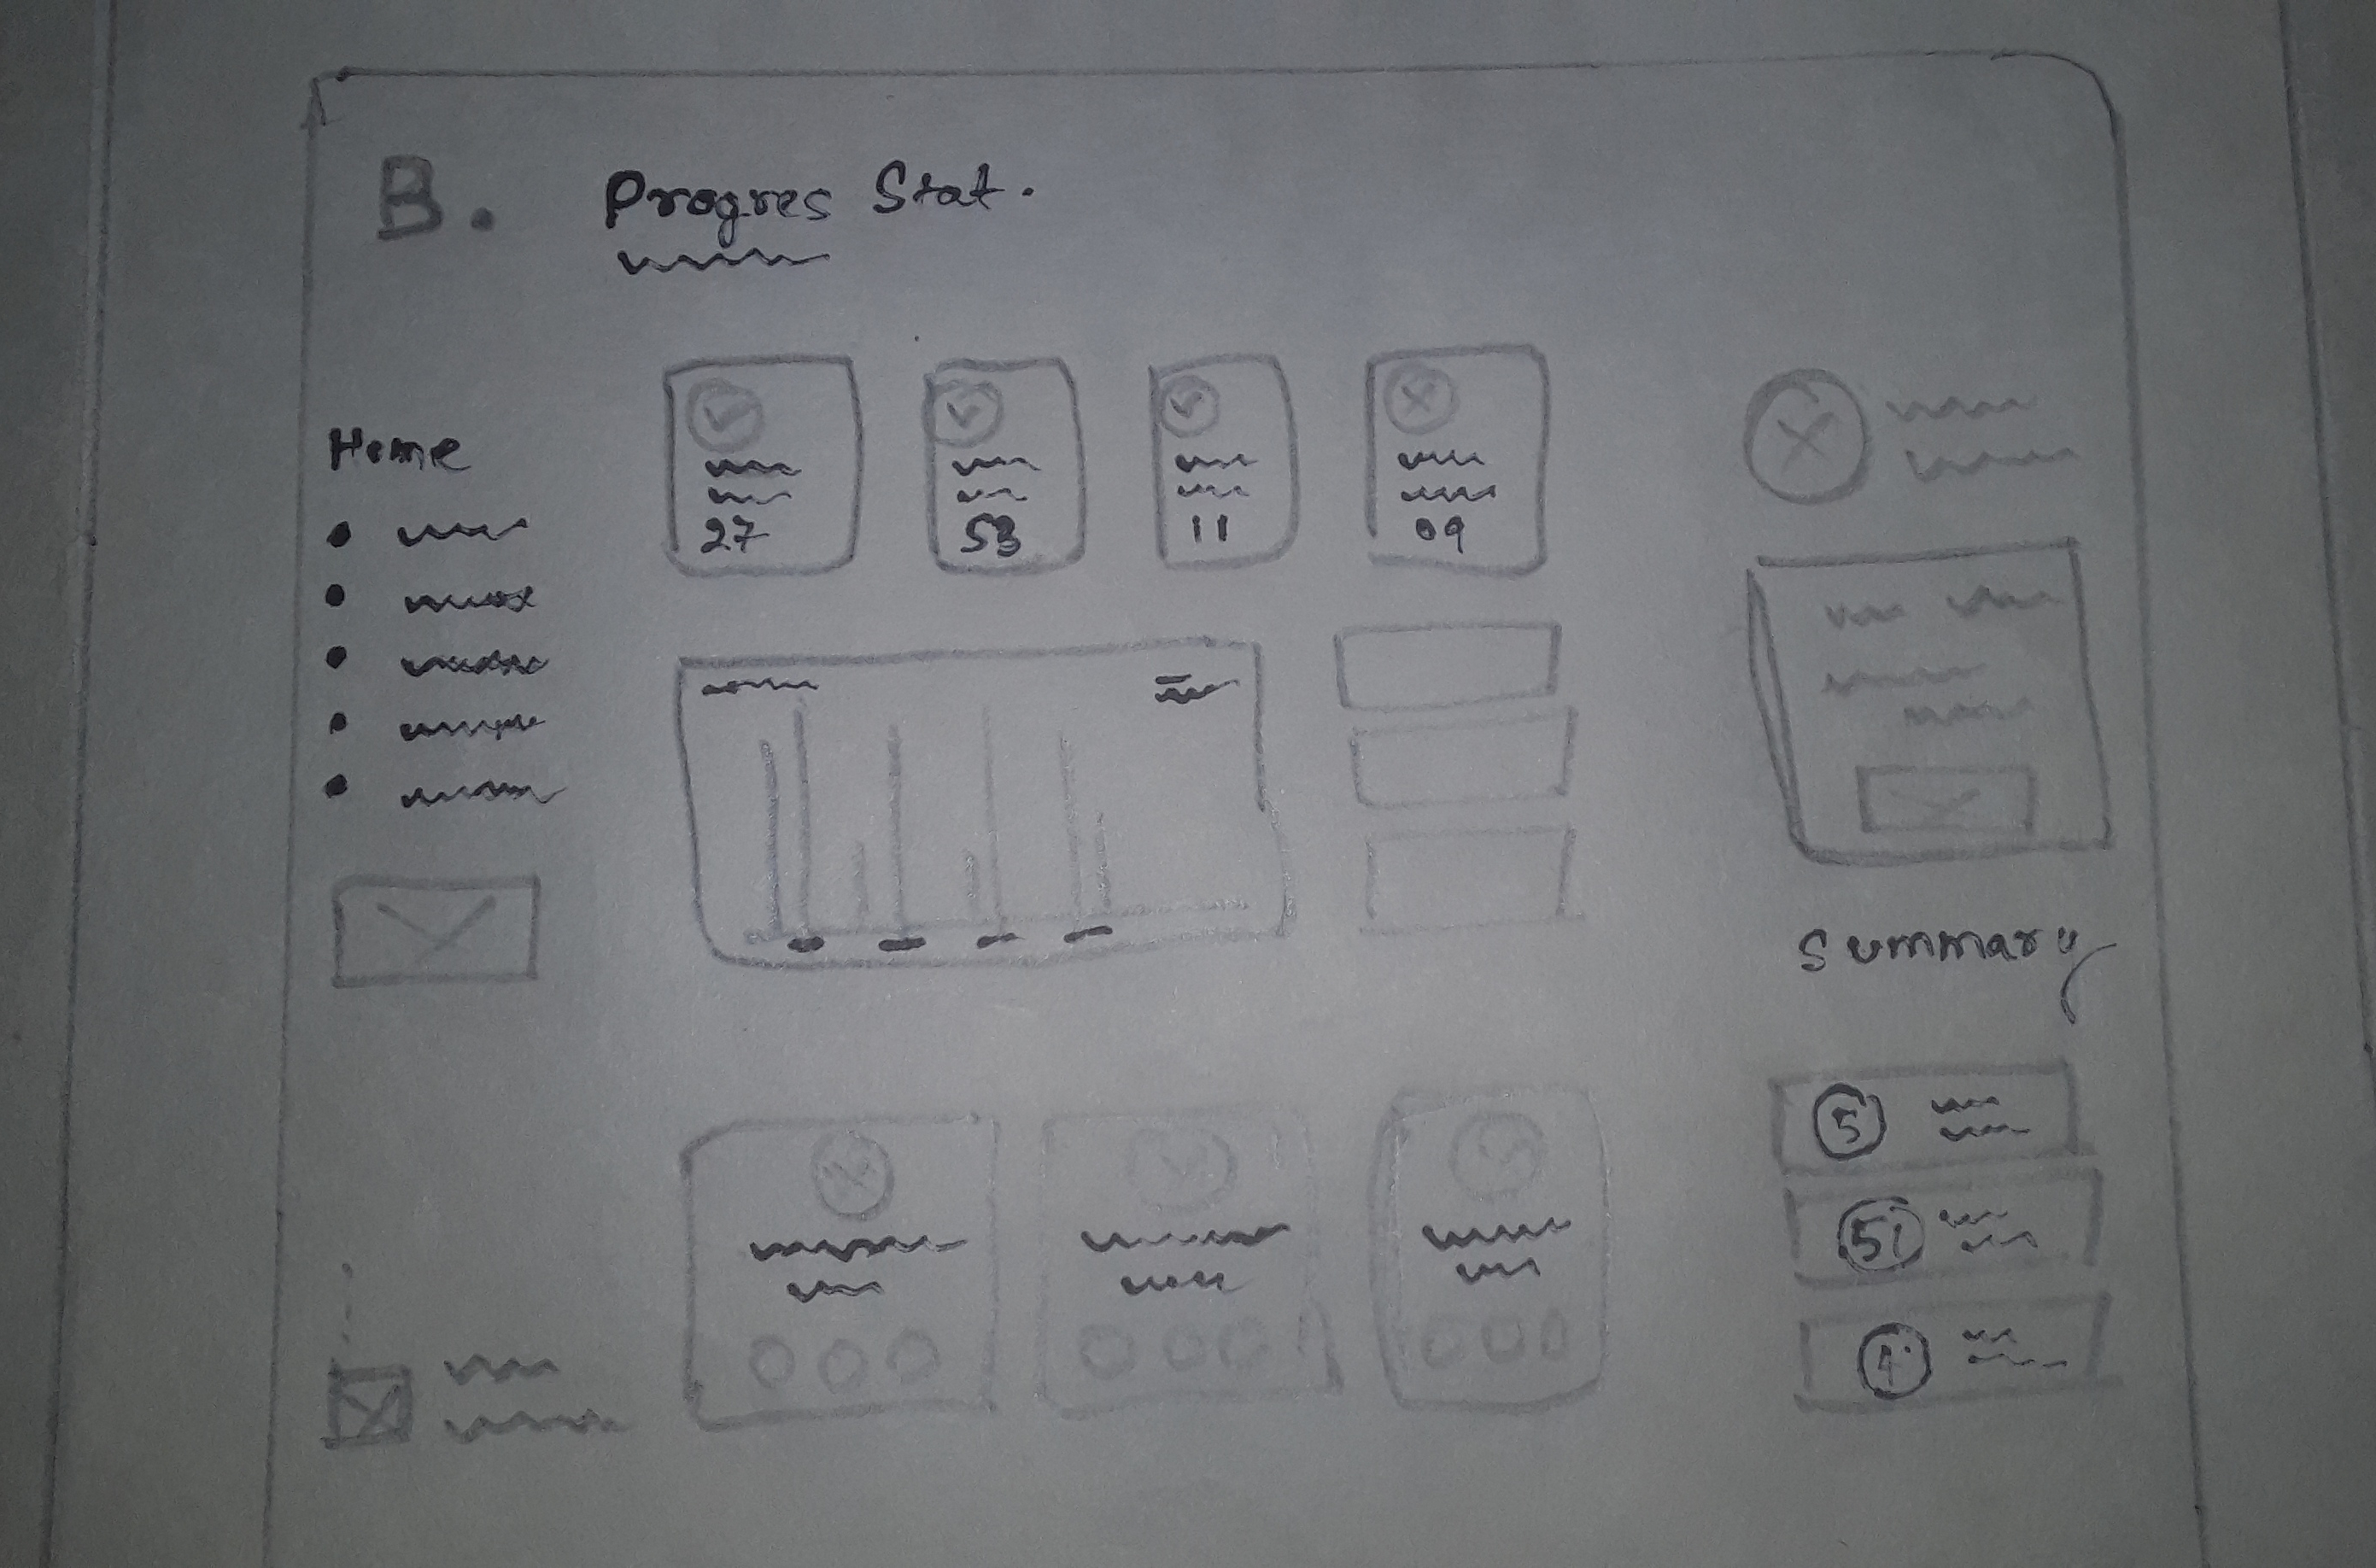 B. Progres Stat.
Home
27 53 11 09
Summary
5
51
4